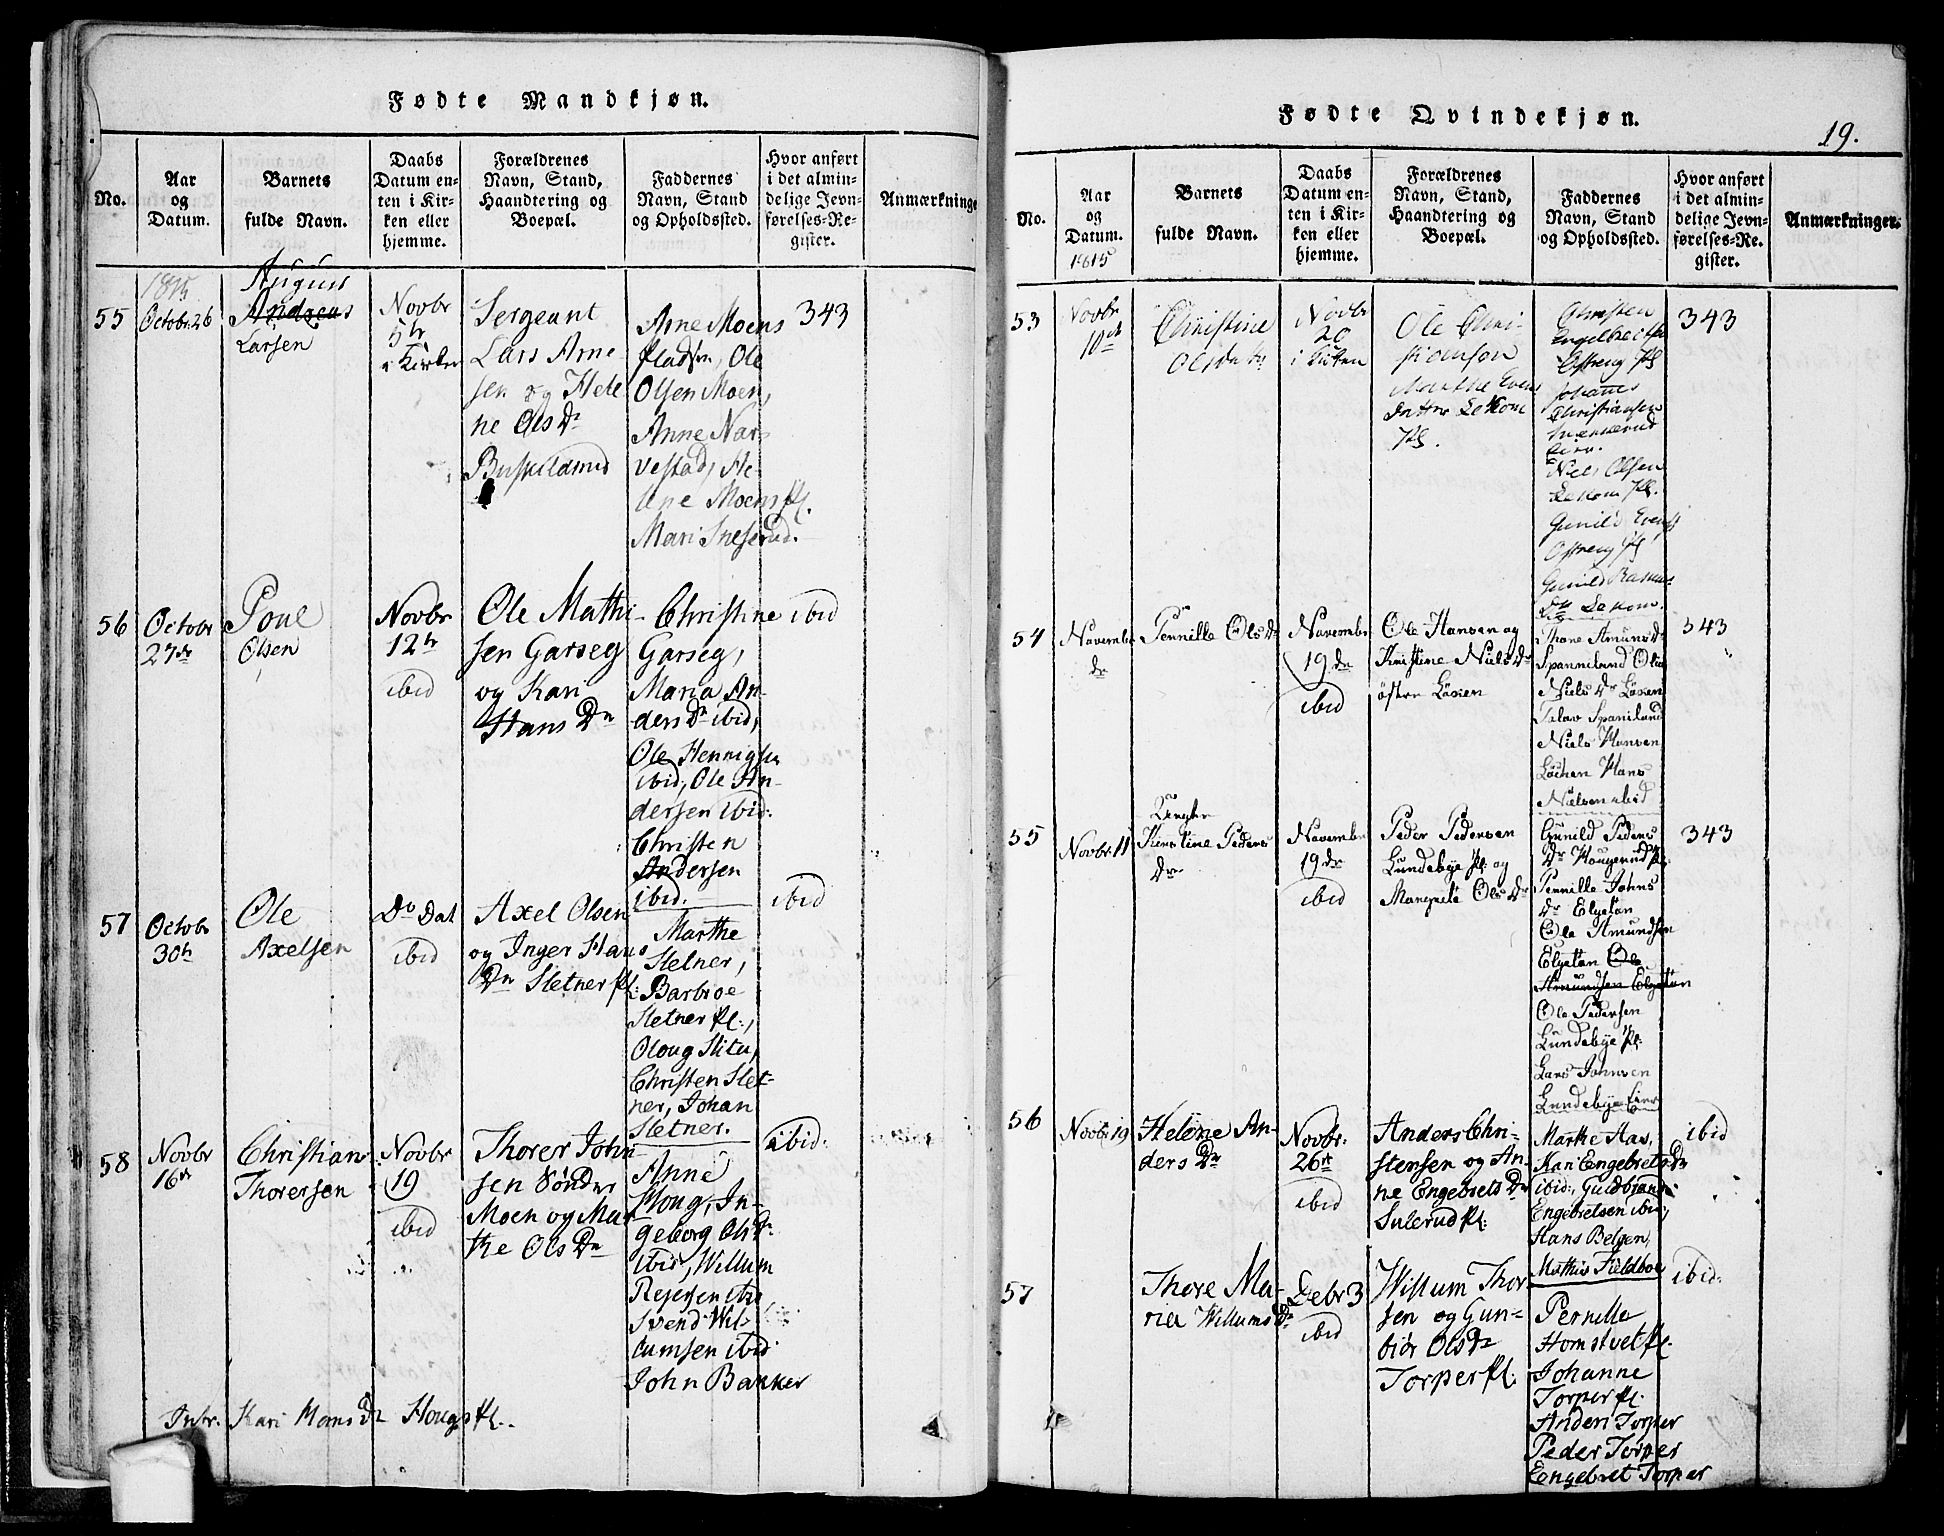 Fødte Mandkjøn.
No.
Aar
og
Datum.
Barnets
fulde Navn.
Daabs
Datum en-
ten i Kir-
ken eller
hjemme.
Forældrenes
Navn, Stand,
Haandtering og
Boepæl.
Faddernes
Navn, Stand
og Opholdssted.
Hvor anført
i det almin-
delige Jevn-
førelses-Re-
gister.
Anmærkninge
55
1815
Octobr. 26
August
Andreas
Larsen
Novbr
5te
i Kirken
Sergeant
Lars Arne
sen og Hele
ne Olsdr
Arne Moens
pladsen, Ole
Olsen Moen,
Anne Nar-
vestad, He-
lene Moens pl.
Mari Sneserud.
343
56
Octobr
27de
Poul
Olsen
Novbr
12te
ibid
Ole Mathi-
sen Garseg
og Kari
Hans Dr
Christine
Garseg,
Maria An-
ders Dr ibid,
Ole Hennigsen
ibid, Ole An-
dersen ibid:
Christen
Andersen
ibid.
ibid
57
Octobr
30te
Ole
Axelsen
Do Dat
ibid
Axel Olsen
og Inger Hans
Dr Sletner pl:
Marthe
Sletner,
Barbroe
Sletner pl.,
Oloug Slitu,
Christen Slet-
ner, Johan
Sletner.
ibid
58
Novbr
16de
Christian
Thorersen
Novbr
19
ibid
Thorer John
sen Sønder
Moen og Mar
the Ols Dr
Anne
Houg, In-
geborg Ols Dr
ibid, Willum
Rejersen ibid,
Svend Wil-
lumsen ibid
John Bakker
ibid:
Intr. Kari Mons Dr Hougs pl.
Fødte Qvindekjøn.
19.
No.
Aar
og
Datum.
1815
Barnets
fulde Navn.
Daabs
Datum en-
ten i Kir-
ken eller
hjemme.
Forældrenes
Navn, Stand,
Haandtering og
Boepæl.
Faddernes
Navn, Stand
og Opholdssted.
Hvor anført
i det almin-
delige Jevn-
førelses-Re-
gister.
Anmærkninger.
53
Novbr
10de
Christine
Olsdatter
Novbr
20
i Kirken
Ole Chri-
stiansen
Marthe Evens
datter Lekom
Pl.
Christen
Engelbretsen
Ostreng Pl
Johannes
Christiansen
eier.
Niels Olsen
Lekom Pl.
Gunild Evens
Ostreng Pl
Gunild Rasmus
Dtr Lekom.
343
54
Novembr
de
Pernille Ols Dr
Novembr
19de
ibid
Ole Hansen og
Kristine Niels Dr
østre Löken
Thore Amunds Dr
Spannilund Olia
Niels Dr Löken
Spanilund
Niels Hansen
Löchen Hans
Nielsen ibid
343
55
Novbr. 11
Kirstine Peders
Dr
Novembr
19de
ibid
Peder Pedersen
Lundebye Pl og
Margrete Ols Dr
Gunild Peders
Dr Haugerud Pl.
Pernille Johns
Dr Elgetan
Ole Amundsen
Elgetan Ole
Amundsen Elgetan
Ole Pedersen
Lundebye Pl.
Lars Johnsen
Lundebye Eier
343
56
Novbr. 19
Helene An-
ders Dr
Novbr:
26de
ibid
Anders Chri-
stensen og An-
ne Engebrets Dr
Sulerud pl:
Marthe Aas,
Kari Engebrets Dr
ibid:, Guldbrand
Engebretsen ibid;,
Hans Belgen,
Mathis Fieldboe
ibid
57
Thore Ma-
ria Willums Dr
Debr 3
ibid
Willum Thor
sen og Gun-
biør Ols Dr
Torper pl.
Pernille
Homstvet pl.
Johanne
Torper pl.
Anders Torper
Peder Torper
Engebret Torper
ibid: